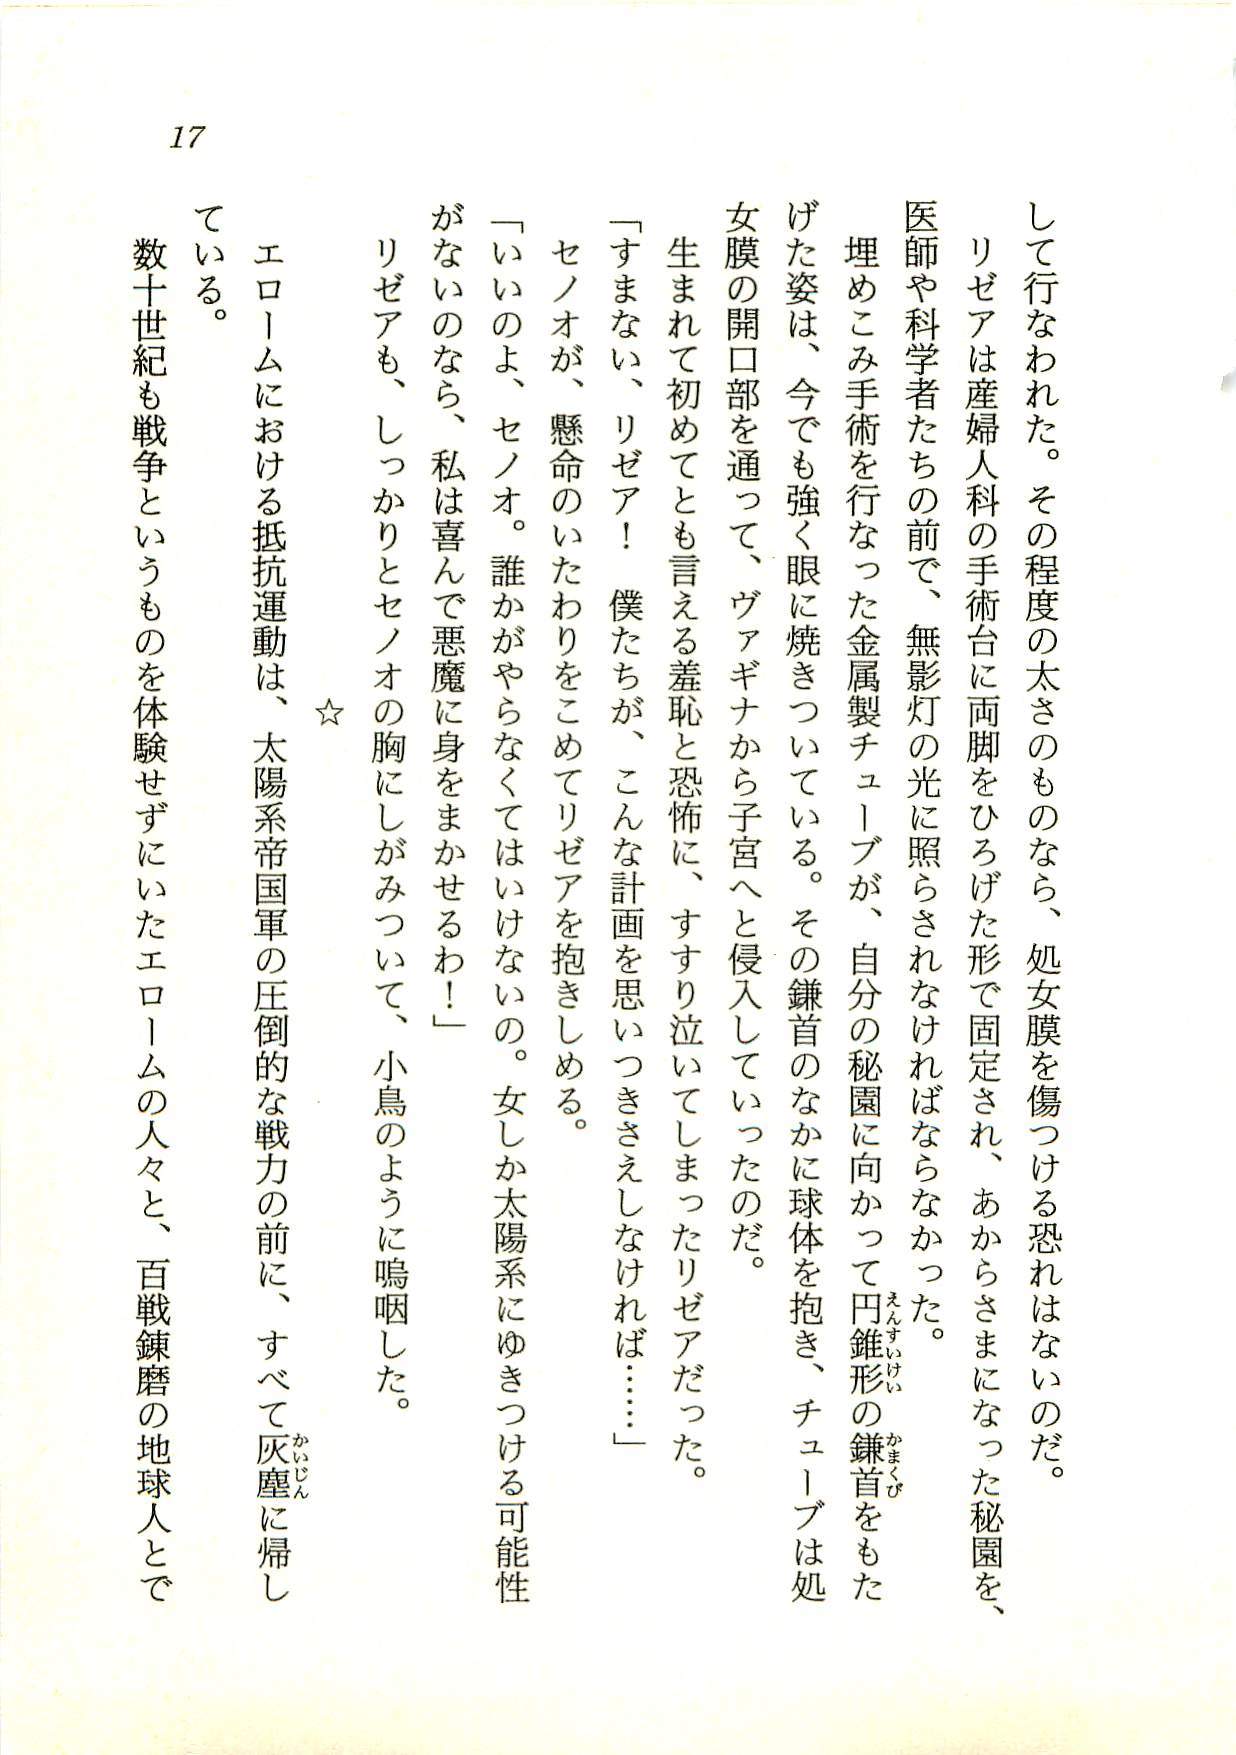 17
して行なわれた。その程度の太さのものなら、処女膜を傷つける恐れはないのだ。
リゼアは産婦人科の手術台に両脚をひろげた形で固定され、あからさまになった秘園を、
医師や科学者たちの前で、無影灯の光に照らされなければならなかった。
埋めこみ手術を行なった金属製チューブが、自分の秘園に向かって円錐形の鎌首をもた
えんすいけい
かまくび
げた姿は、今でも強く眼に焼きついている。その鎌首のなかに球体を抱き、チューブは処
女膜の開口部を通って、ヴァギナから子宮へと侵入していったのだ。
生まれて初めてとも言える羞恥と恐怖に、すすり泣いてしまったリゼアだった。
「すまない、リゼア！　僕たちが、こんな計画を思いつきさえしなければ……」
セノオが、懸命のいたわりをこめてリゼアを抱きしめる。
「いいのよ、セノオ。誰かがやらなくてはいけないの。女しか太陽系にゆきつける可能性
がないのなら、私は喜んで悪魔に身をまかせるわ！」
リゼアも、しっかりとセノオの胸にしがみついて、小鳥のように嗚咽した。
☆
エロームにおける抵抗運動は、太陽系帝国軍の圧倒的な戦力の前に、すべて灰塵に帰し
かいじん
ている。
数十世紀も戦争というものを体験せずにいたエロームの人々と、百戦錬磨の地球人とで